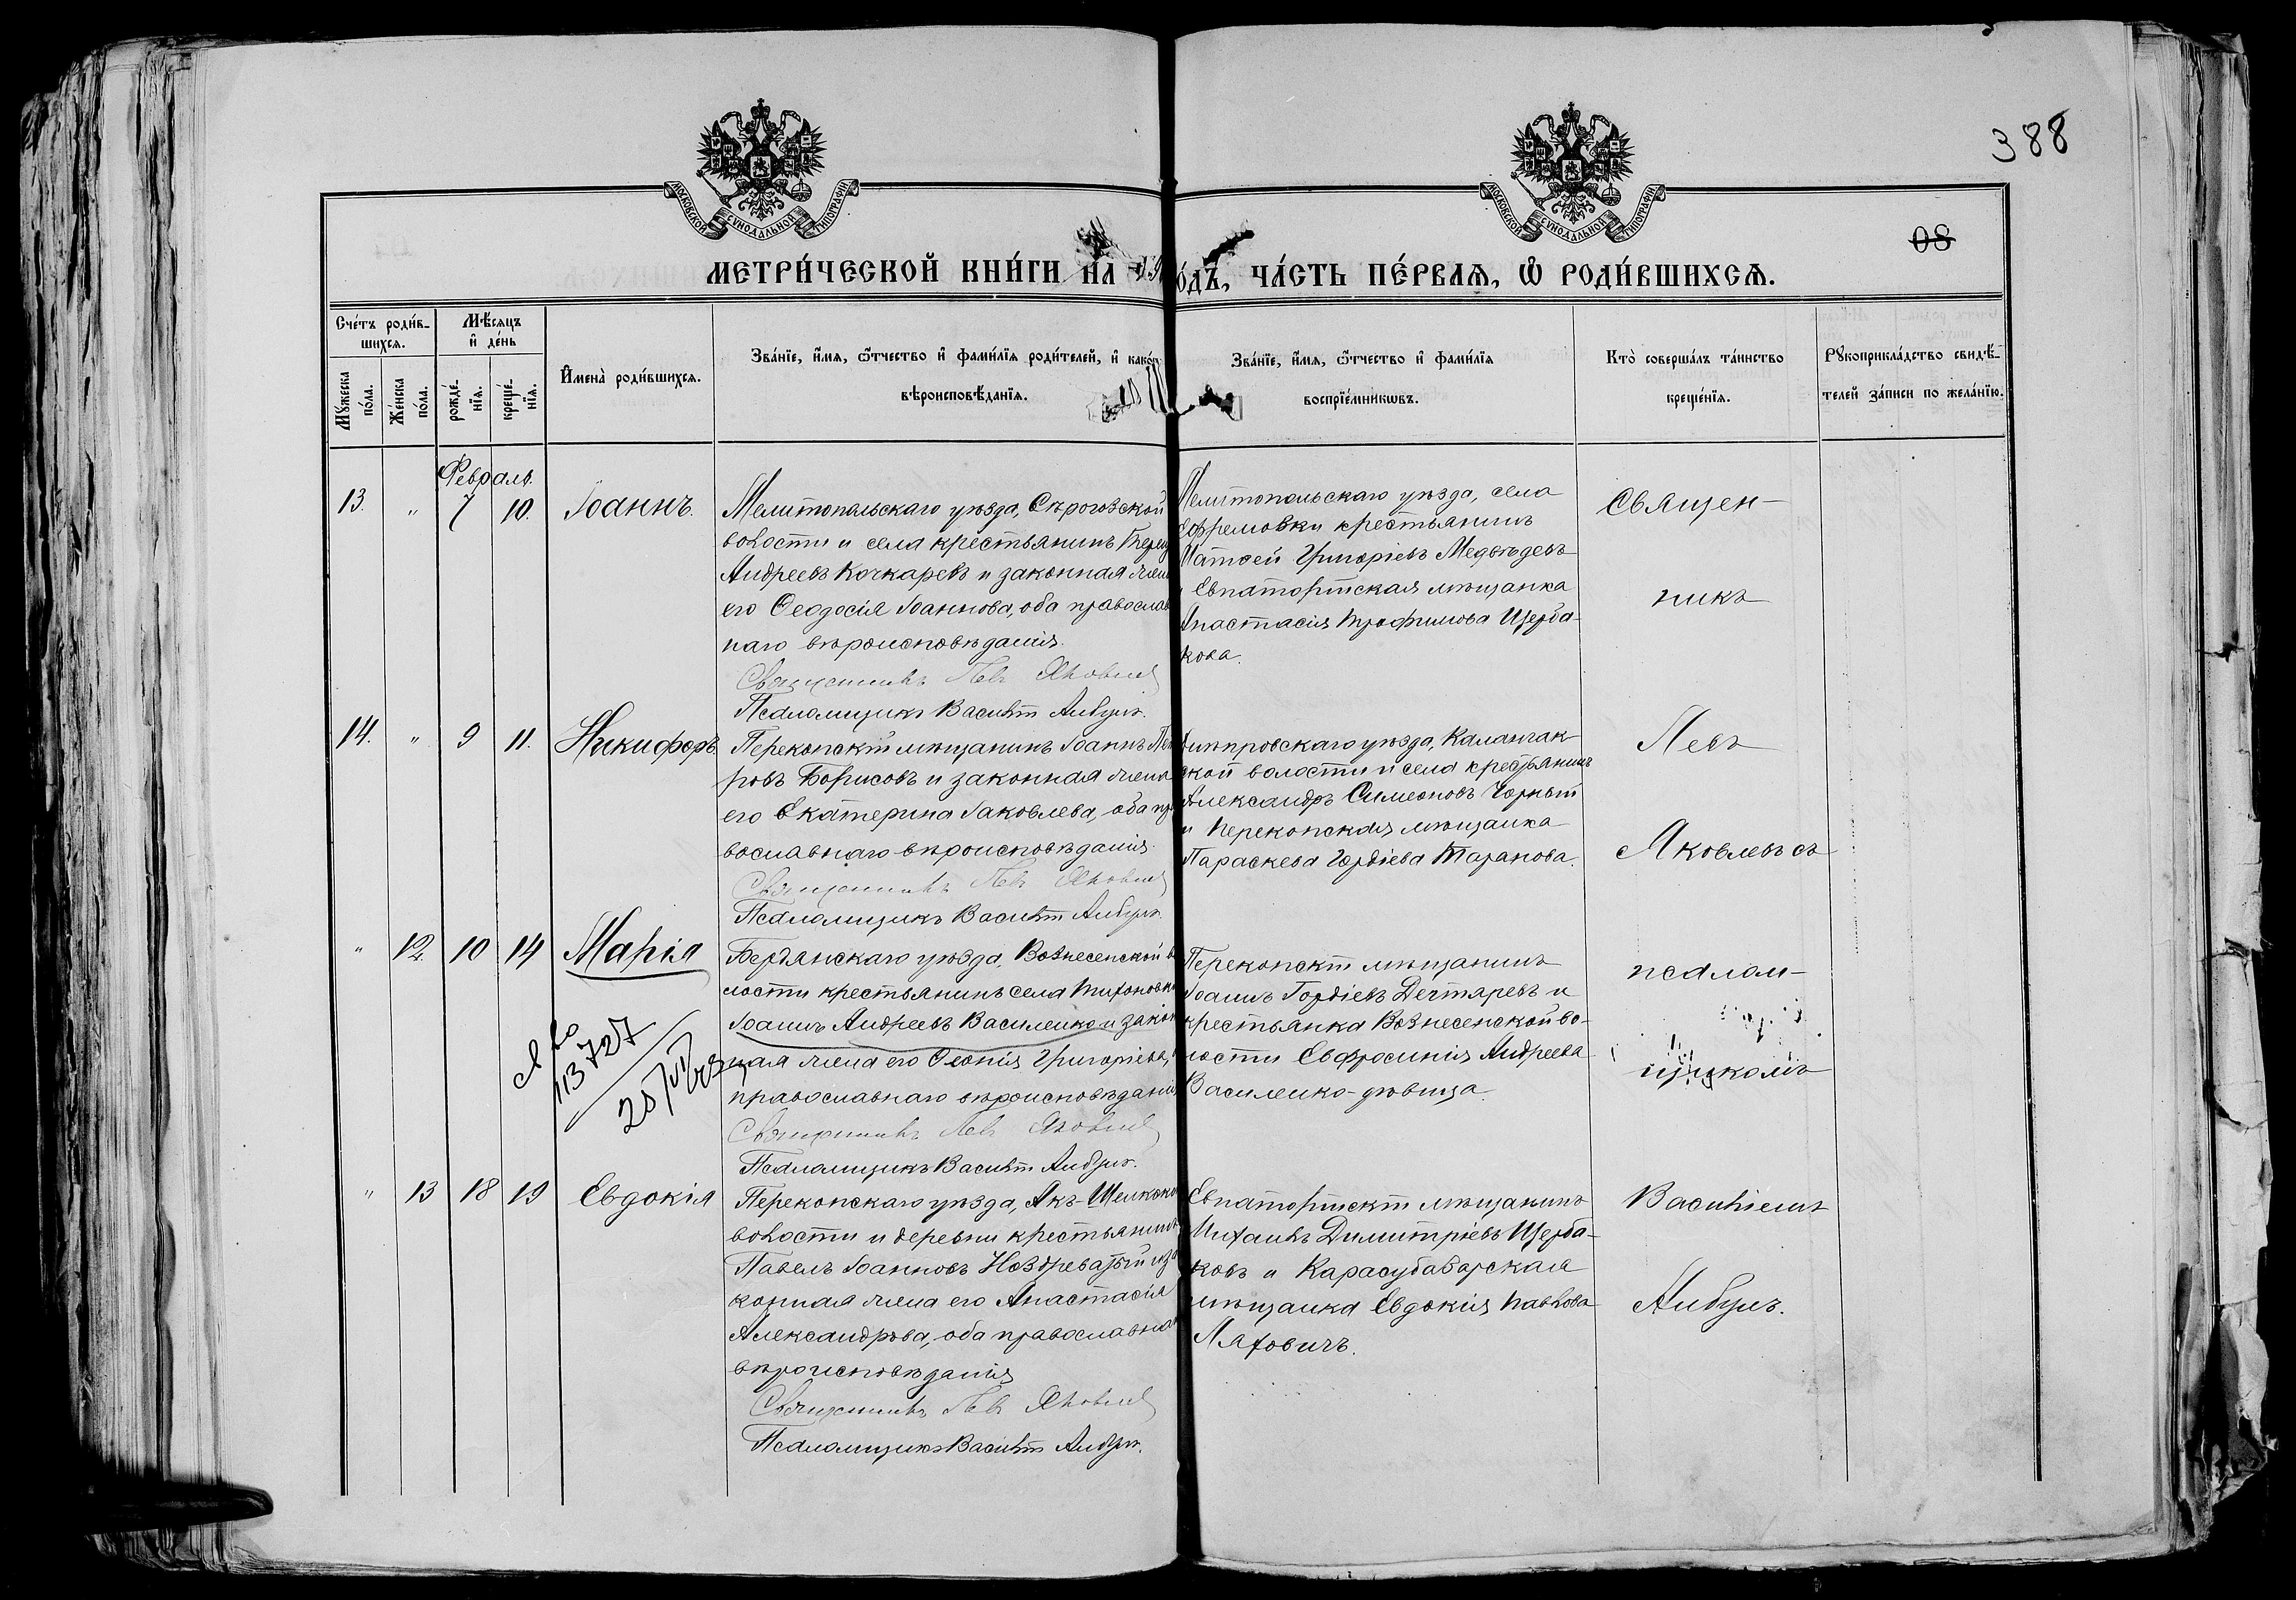 388
МОСКОВСКОЙ СѴНОДАЛЬНОЙ ТИПОГРАФІИ
МОСКОВСКОЙ СѴНОДАЛЬНОЙ ТИПОГРАФІИ
08
МЕТРИ́ЧЕСКОЙ КНИ́ГИ НА
О́ДЪ, ЧА́СТЬ ПЕ́РВАѦ, Ѡ҆ РОДИ́ВШИХСѦ.
Сче́тъ роди́в-
шихсѧ.
Мѣ́сѧцъ
и҆ де́нь
Мꙋ́жеска
по́ла.
Же́нска
по́ла.
рожде́-
нїѧ.
креще́-
нїѧ.
И҆мена̀ роди́вшихсѧ.
Зва́нїе, и҆́мѧ, ѻ҆́тчество и҆ фами́лїѧ роди́телей, и҆ како́г
вѣроисповѣ́данїѧ.
Зва́нїе, и҆́мѧ, ѻ҆́тчество и҆ фами́лїѧ
воспрїе́мникѡвъ.
Кто̀ соверша́лъ та́инство
креще́нїѧ.
Рꙋкоприкла́дство свидѣ́-
телей за́писи по жела́нїю.
Февраль.
13. " 7 10. Іоаннъ.
Мелитопольскаго уѣзда, Сѣрогозской
волости и села крестьянинъ
Андреевъ Кочкаревъ и законная жена
его Ѳеодосія Іоаннова, оба православ
наго вѣроисповѣданія.
Священникъ Левъ Яковлев
Псаломщикъ Василій Анбулъ.
Мелитопольскаго уѣзда, села
Ефремовки крестьянинъ
Матѳей Григоріевъ Медвѣдевъ
Евпаторійская мѣщанка
Анастасія Трофимова Щерба-
кова.
Священ-
никъ
14. " 9 11. Никифоръ
Перекопскій мѣщанинъ Іоаннъ Пет
ровъ Борисовъ и законная жена
его Екатерина Іаковлева, оба пра
вославнаго вѣроисповѣданія.
Священникъ Левъ Яковлев
Псаломщикъ Василій Анбулъ.
Днѣпровскаго уѣзда, Каланчак-
ской волости и села крестьянинъ
Александръ Симеоновъ Чорный
и Перекопская мѣщанка
Параскева Гордіева Таранова.
Левъ
Яковлевъ съ
" 12 10 14 Марія
Бердянскаго уѣзда, Вознесенской во
лости крестьянинъ села Тихоновки
Іоаннъ Андреевъ Василенко и закон
ная жена его Ѳеонія Григоріева,
православнаго вѣроисповѣданія
Священникъ Левъ Яковлев
Псаломщикъ Василій Анбулъ.
113727
Перекопскій мѣщанинъ
Іоаннъ Гордіевъ Дегтяревъ и
крестьянка Вознесенской во-
лости Евфросинія Андреева
Василенко - дѣвица.
псалом-
щикомъ
" 13 18 19 Евдокія
Перекопскаго уѣзда, Акъ-Шеикской
волости и деревни крестьянинъ
Павелъ Іоанновъ Ноздреватый и за
конная жена его Анастасія
Александрова, оба православнаго
вѣроисповѣданія
Священникъ Левъ Яковлев
Псаломщикъ Василій Анбулъ.
Евпаторійскій мѣщанинъ
Михаилъ Димитріевъ Щерба-
ковъ и Карасубазарская
мѣщанка Евдокія Павлова
Ляховичъ.
Василіемъ
Анбулъ.